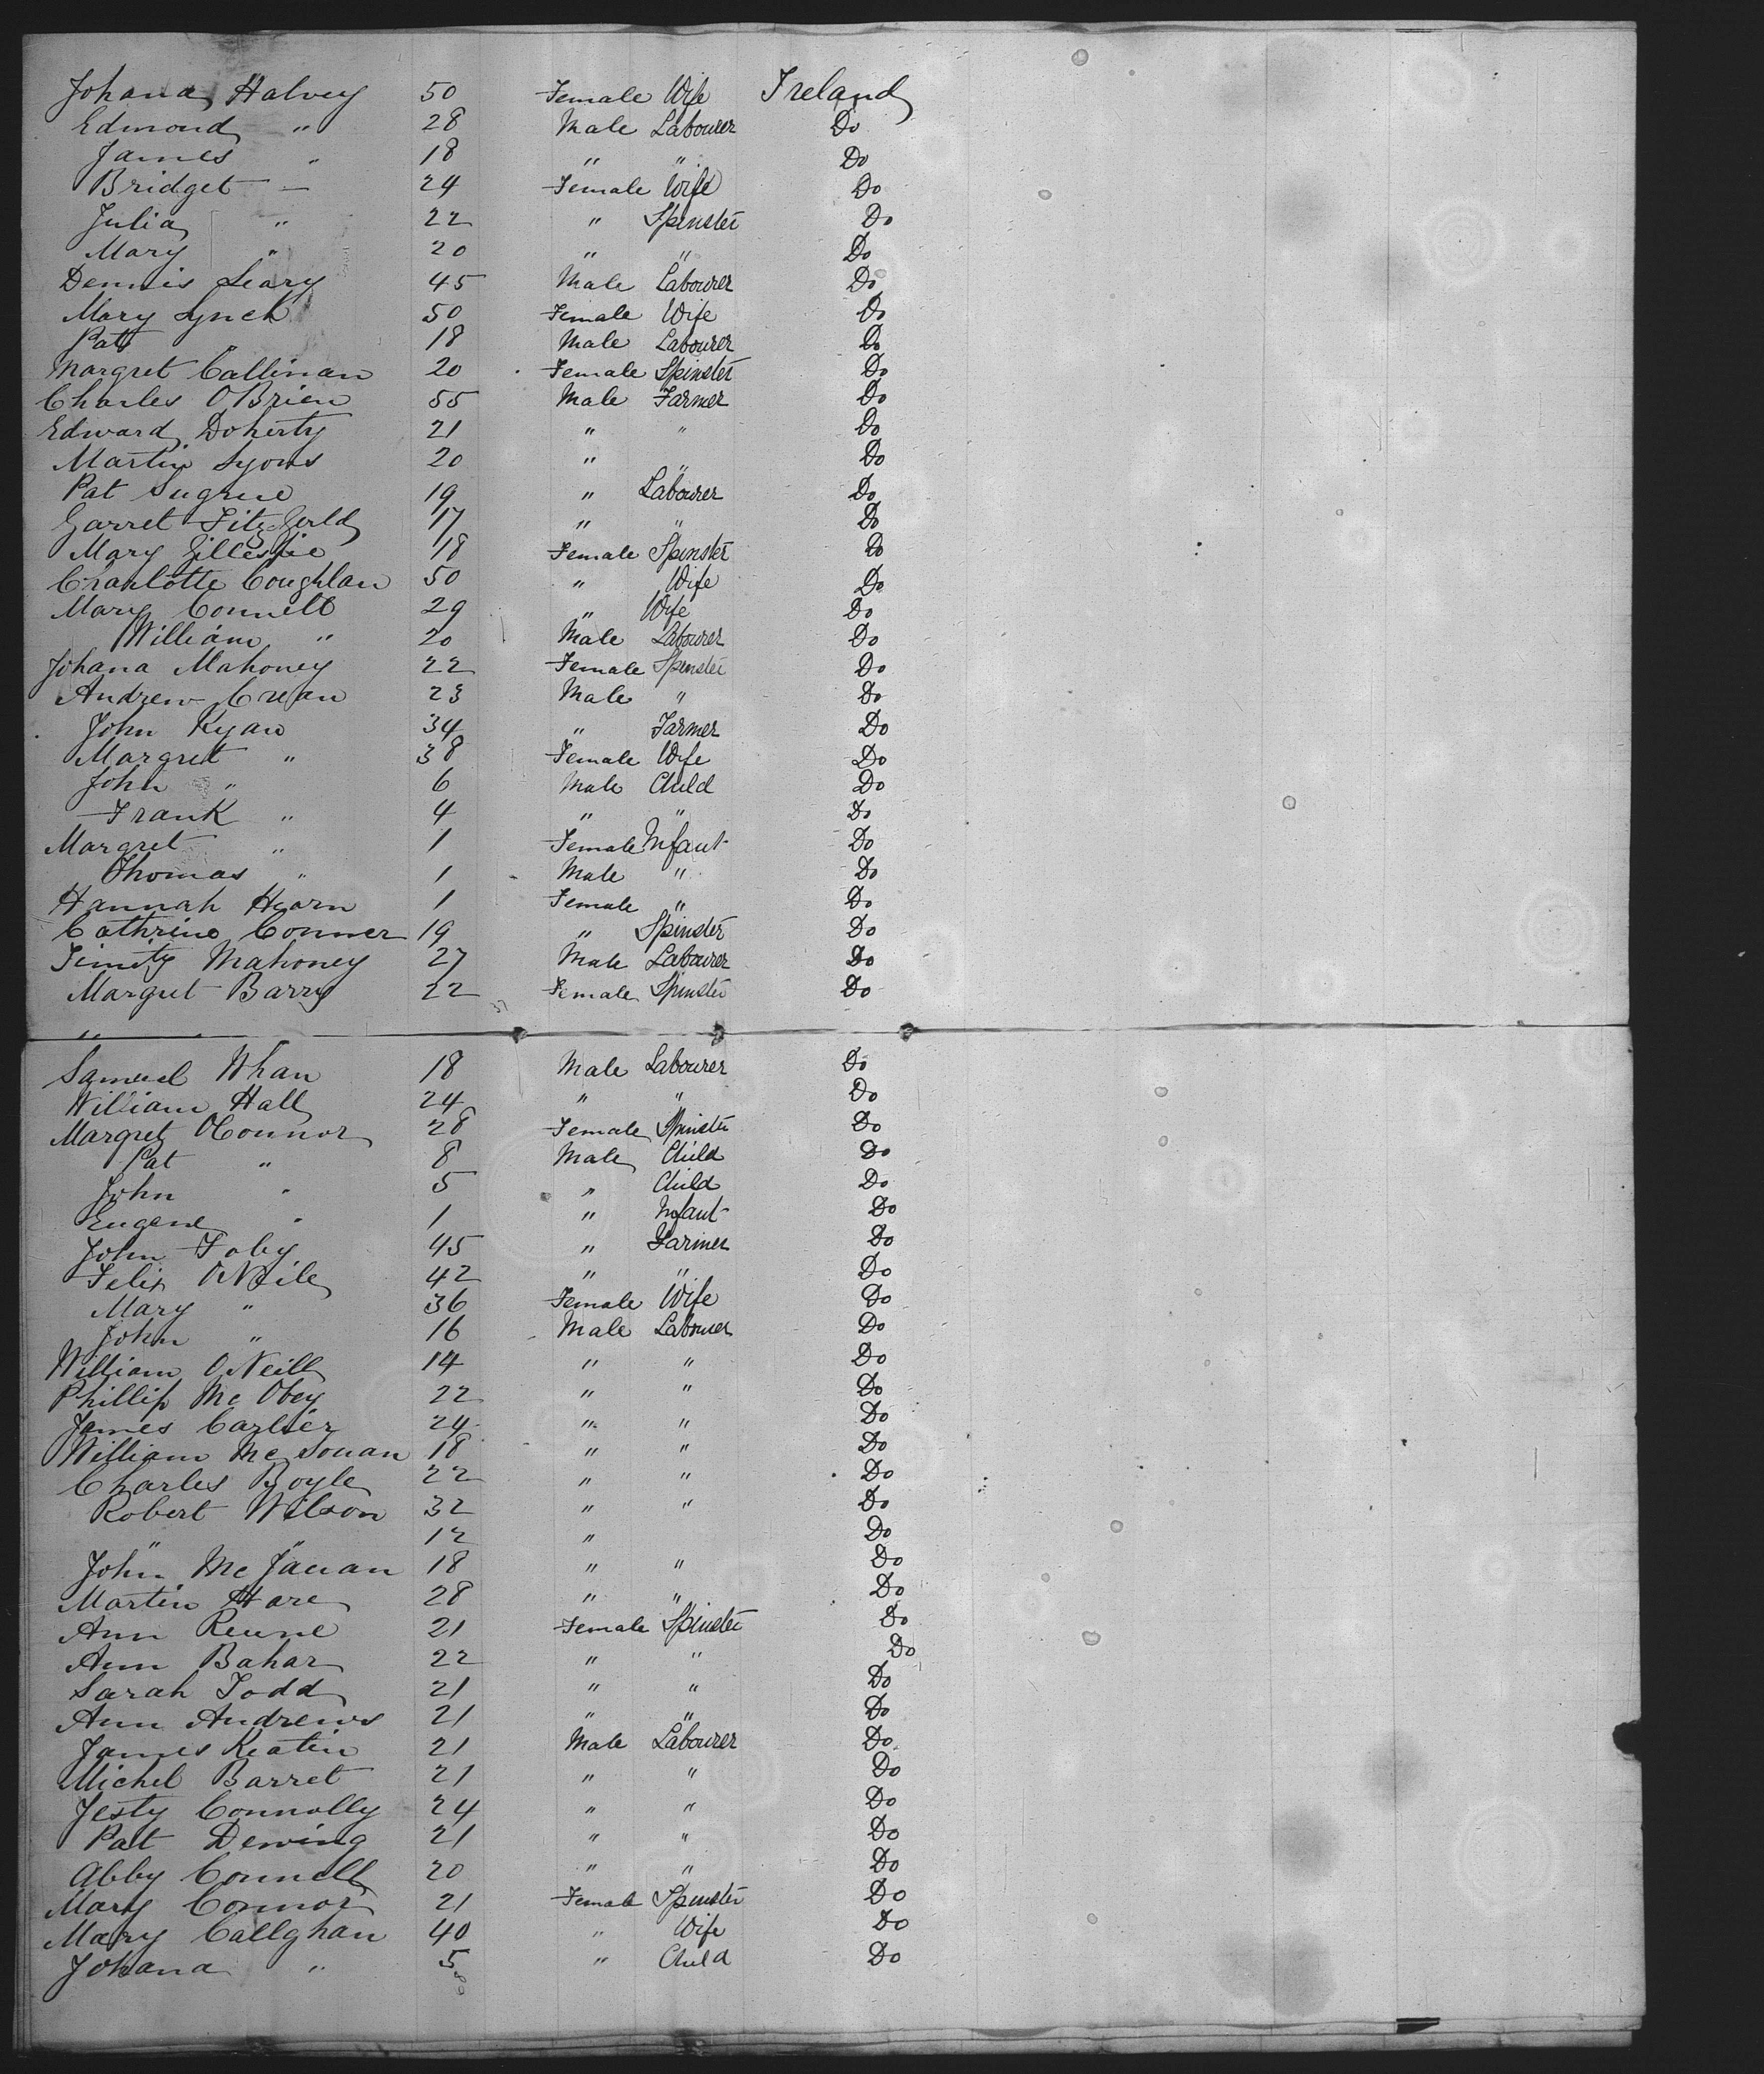 Johana Halvey 50 Female Wife Ireland
Edmond " 28 Male Labourer Do
James " 18 " " Do
Bridget — 24 Female Wife Do
Julia " 22 " Spinster Do
Mary " 20 " " Do
Dennis Leary 45 Male Labourer Do
Mary Lynch 50 Female Wife Do
Patt " 18 Male Labourer Do
Margret Callinan 20 Female Spinster Do
Charles OBrien 55 Male Farmer Do
Edward Doherty 21 " " Do
Martin Lyons 20 " " Do
Pat Sugrue 19 " Labourer Do
Garret Fitz Gerld 17 " " Do
Mary Gillespie 18 Female Spinster Do
Charlotte Coughlan 50 " Wife Do
Mary Connell 29 " Wife Do
William " 20 Male Labourer Do
Johana Mahoney 22 Female Spinster Do
Andrew Crean 23 Male " Do
John Ryan 34 " Farmer Do
Margret " 38 Female Wife Do
John " 6 Male Child Do
Frank " 4 " " Do
Margret " 1 Female Infant Do
Thomas " 1 Male " Do
Hannah Hearn 1 Female " Do
Cathrine Conner 19 " Spinster Do
Timity Mahoney 27 Male Labourer Do
Margret Barry 22 Female Spinster Do
"
Samuel Whan 18 Male Labourer Do
William Hall 24 " " Do
Margret OConnor 28 Female Spinster Do
Pat " 8 Male Child Do
John " 5 " Child Do
Eugene " 1 " Infant Do
John Foby 45 " Farmer Do
Felix ONeile 42 " " Do
Mary " 36 Female Wife Do
John " 16 Male Labourer Do
William O Neill 14 " " Do
Phillip Mc Obey 22 " " Do
James Carlier 24 " " Do
William Mc 18 " " Do
Charles Boyle 22 " " Do
Robert Wilson 32 " " Do
" " 12 " Do
John Mc 18 " " Do
Martin Hare 28 " " Do
Ann 21 Female Spinster Do
Ann Bahar 22 " " Do
Sarah Todd 21 " " Do
Ann Andrews 21 " " Do
James Keatin 21 Male Labourer Do
Michel Barret 21 " " Do
Festy Connolly 24 " " Do
Pat Dewing 21 " " Do
Abby Connell 20 " " Do
Mary Connor 21 Female Spinster Do
Mary Callghan 40 " Wife Do
Johana " 5 " Child Do